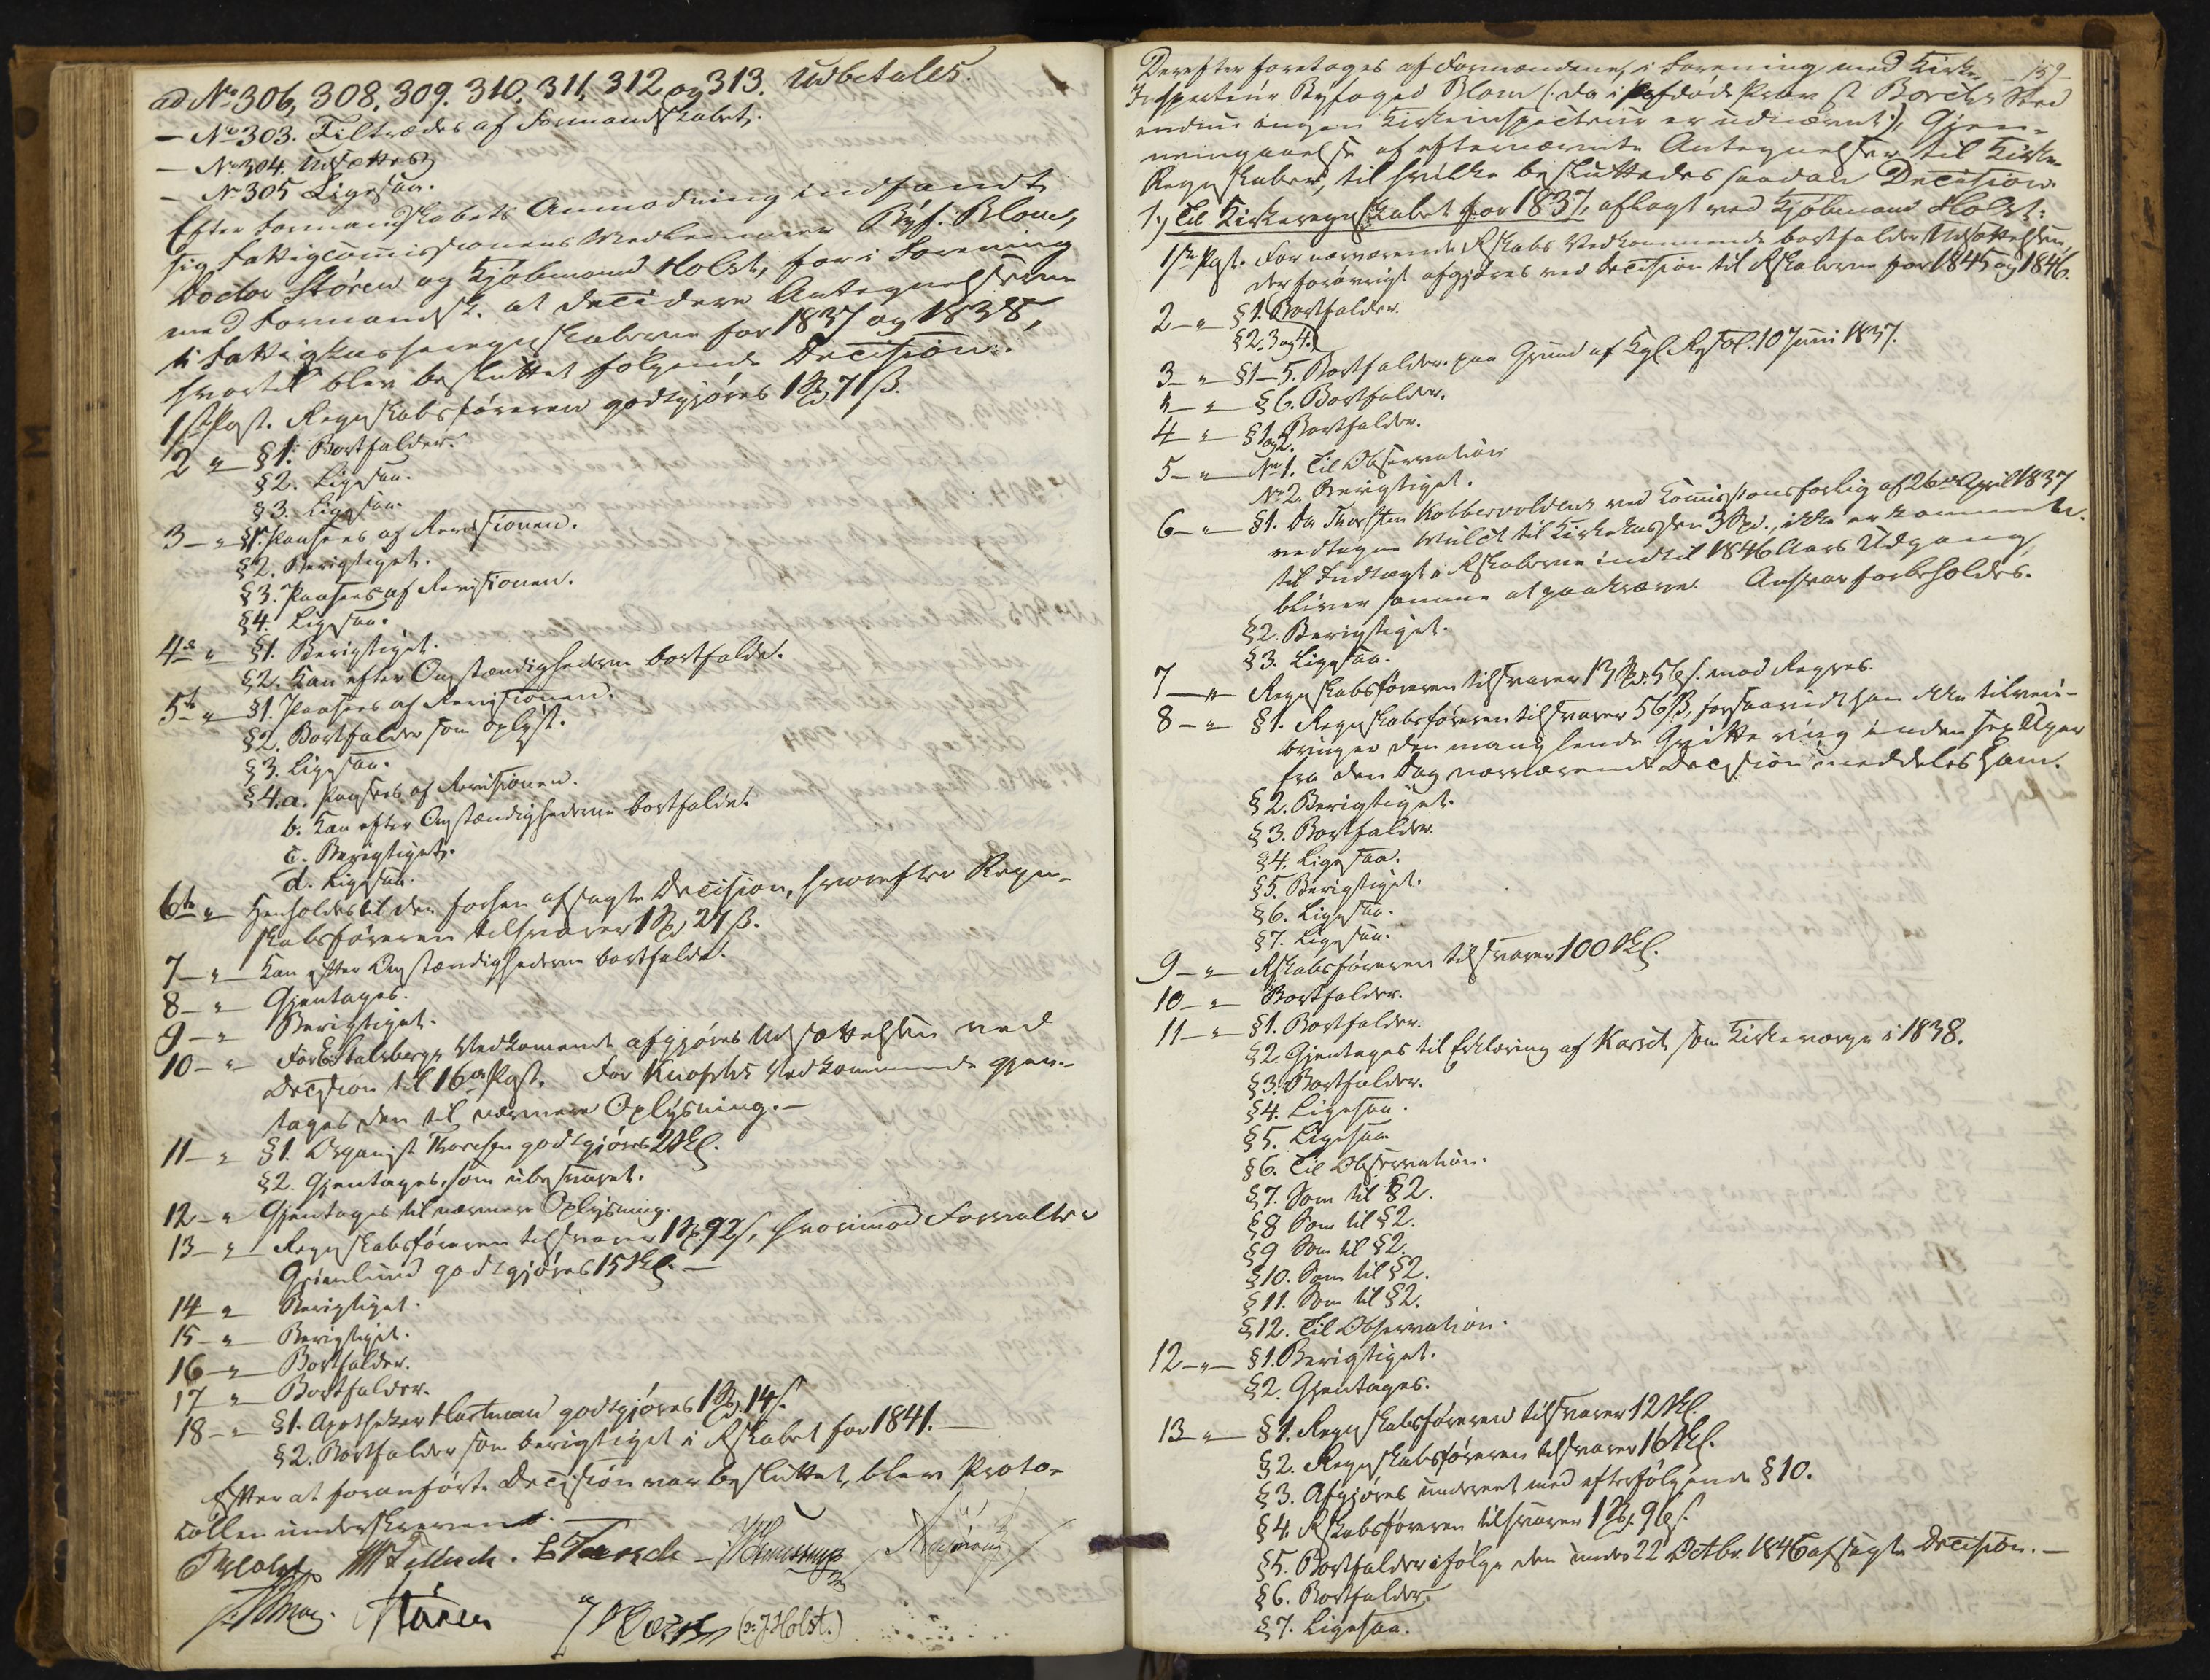 ad No 306, 308. 309. 310. 311, 312 og 313. Udbetales.
— No 303. Tiltrædes af Formandskabet.
— No 304. Udsættes
— No 305 Ligesaa.
Efter Formandskabets Anmodning indfandt
sig Fattigcommissionens Medlemmer Byf. Blom,
Doctor Støren og Kjøbmand Holst, for i Forening
med Formandsk. at decidere Antegnelserne
til Fattigkasseregnskaberne for 1837 og 1838,
hvortil blev besluttet følgende Decision:
1ste Post. Regnskabsføreren godtgjøres 1 Spd 71 ß.
2 " — §1. Bortfalder.
§2. Ligesaa.
§3. Ligesaa.
3 — " §1. Paasees af Revisionen.
§2. Berigtiget.
§3. Paasees af Revisionen.
§4. Ligesaa.
4de " §1. Berigtiget.
§2. Kan efter Omstændighederne bortfalde.
5te " §1. Paasees af Revisionen.
§2. Bortfalder som oplyst.
§3. Ligesaa.
§4. a. Paasees af Revisionen.
b. Kan efter Omstændighederne bortfalde.
c. Berigtiget.
d. Ligesaa.
6te " Henholdes til den forhen afsagte Decision, hvorefter Regn-
skabsføreren tilsvarer 1 Spd 24 ß.
7 — " — Kan efter Omstændighederne bortfalde.
8 — " Gjentages.
9 — " Berigtiget.
10 — " For Stalsbergs Vedkomende afgjøres Udsættelsen ved
Decision til 16de Post. For Knophs Vedkommende gjen-
tages den til nærmere Oplysning. —
11 — " §1. Organist Thoresen godtgjøres 2 Skl.
§2. Gjentages, som ubesvaret.
12 — " Gjentages til nærmere Oplysning.
13 — " Regnskabsføreren tilsvarer 1 Sp. 92 ß, hvorimod Forvalter
Grønlund godtgjøres 15 Skl. —
14 — " Berigtiget.
15 — " — Berigtiget.
16 — " Bortfalder.
17 " — Bortfalder.
18 — " §1. Apotheker Hartman godtgjøres 1 Spd 14 ß.
§2. Bortfalder som berigtiget i Rskabet for 1841. —
Efter at foranførte Decision var besluttet, blev Proto-
collen underskreven.
Støren (n: J. Holst.)
159
Derefter foretoges af Formændene, i Forening med Kirke-
Inspecteur Byfoged Blom (: da i afdøde Prov st Borchs Sted
endnu ingen Kirkeinspecteur er udnævnt :), Gjen-
nemgaaelse af efternævnte Antegnelser til Kirke-
Regnskaber, til hvilke besluttedes saadan Decision.
1.) Til Kirkeregnskabet for 1837, aflagt ved Kjøbmand Holst:
1ste Post. For nærværende Rskabs Vedkommende bortfalder Udsættelsen,
der forøvrigt afgjøres ved Decision til Rskaberne for 1845 og 1846.
2 — " §1. Bortfalder.
§2, 3 og 4.
3 — " §1—5. Bortfalder paa Grund af Kgl. Resol. 10 Juni 1837.
" — " §6. Bortfalder.
4 — " §1 og 2. Bortfalder.
5 — " No 1. Til Observation
No 2. Berigtiget.
6 — " §1. Da Thorsten Kolbersvoldens ved Commissionsforlig af 26de April 1837
vedtagne Mulct til Kirkekassen 3 Spd., ikke er kommen
til Indtægt i Rskaberne indtil 1846 Aars Udgang,
bliver samme at paakræve. Ansvar forbeholdes.
§2. Berigtiget.
§3. Ligesaa.
7 — " Regnskabsføreren tilsvarer 13 Spd. 56 ß. mod Regres.
8 — " §1. Regnskabsføreren tilsvarer 56 ß, forsaavidt han ikke tilveie-
bringer den manglende Qvittering inden sex Uger
fra den Dag nærværende Decision meddeles ham.
§2. Berigtiget.
§3. Bortfalder.
§4. Ligesaa.
§5. Berigtiget.
§6. Ligesaa.
§7. Ligesaa.
9 — " Rskabsføreren tilsvarer 100 Skl.
10 — " Bortfalder.
11 — " §1. Bortfalder.
§2. Gjentages til Erklæring af Karsch som Kirkeværge i 1838.
§3. Bortfalder.
§4. Ligesaa.
§5. Ligesaa
§6. Til Observation.
§7. Som til §2.
§8 Som til §2.
§9 Som til §2.
§10. Som til §2.
§11. Som til §2.
§12. Til Observation.
12 — " — §1. Berigtiget.
§2. Gjentages.
13 — " §1. Regnskabsføreren tilsvarer 12 Skl.
§2. Regnskabsføreren tilsvarer 16 Skl.
§3. Afgjøres underet med efterfølgende §10.
§4. Rskabsføreren tilsvarer 1 Spd. 96 ß.
§5. Bortfalder ifølge den under 22 Octbr. 1846 afsagte Decision. —
§6. Bortfalder.
§7. Ligesaa.